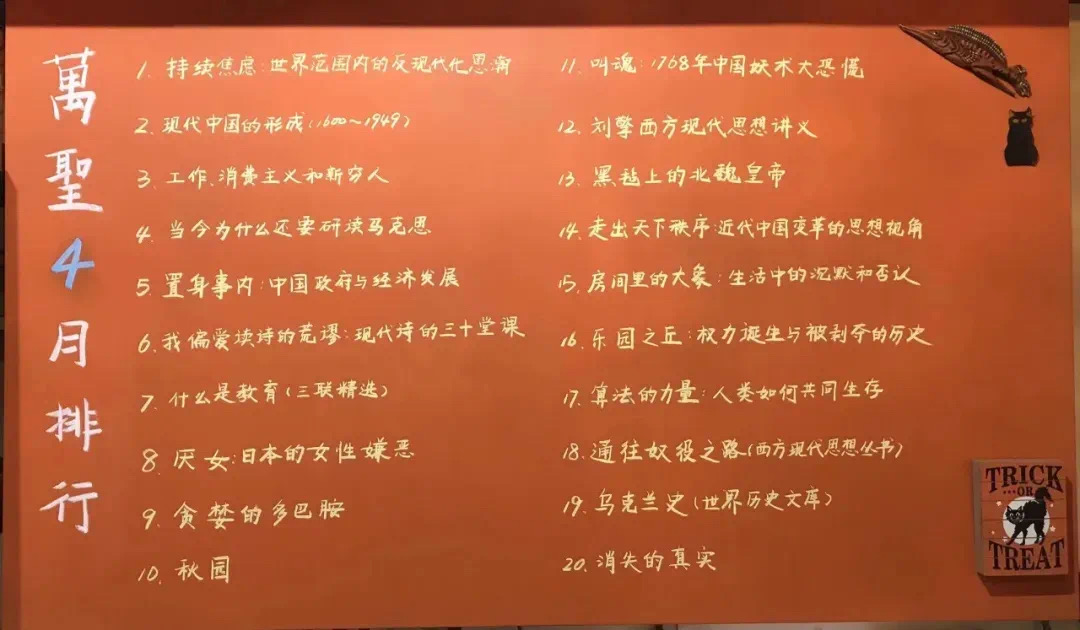 萬聖4月排行
1. 持续焦虑:世界范围内的反现代化思潮
2. 现代中国的形成(1600~1949)
3. 工作、消费主义和新穷人
4. 当今为什么还要研读马克思
5. 置身事内:中国政府与经济发展
6. 我偏爱读诗的荒谬:现代诗的三十堂课
7. 什么是教育(三联精选)
8. 厌女:日本的女性嫌恶
9. 贪婪的多巴胺
10. 秋园
11. 叫魂:1768年中国妖术大恐慌
12. 刘擎西方现代思想讲义
13. 黑毡上的北魏皇帝
14. 走出天下秩序:近代中国变革的思想视角
15. 房间里的大象:生活中的沉默和否认
16. 乐园之丘:权力诞生与被剥夺的历史
17. 算法的力量:人类如何共同生存
18. 通往奴役之路(西方现代思想丛书)
19. 乌克兰史(世界历史文库)
20. 消失的真实
TRICK
OR
TREAT